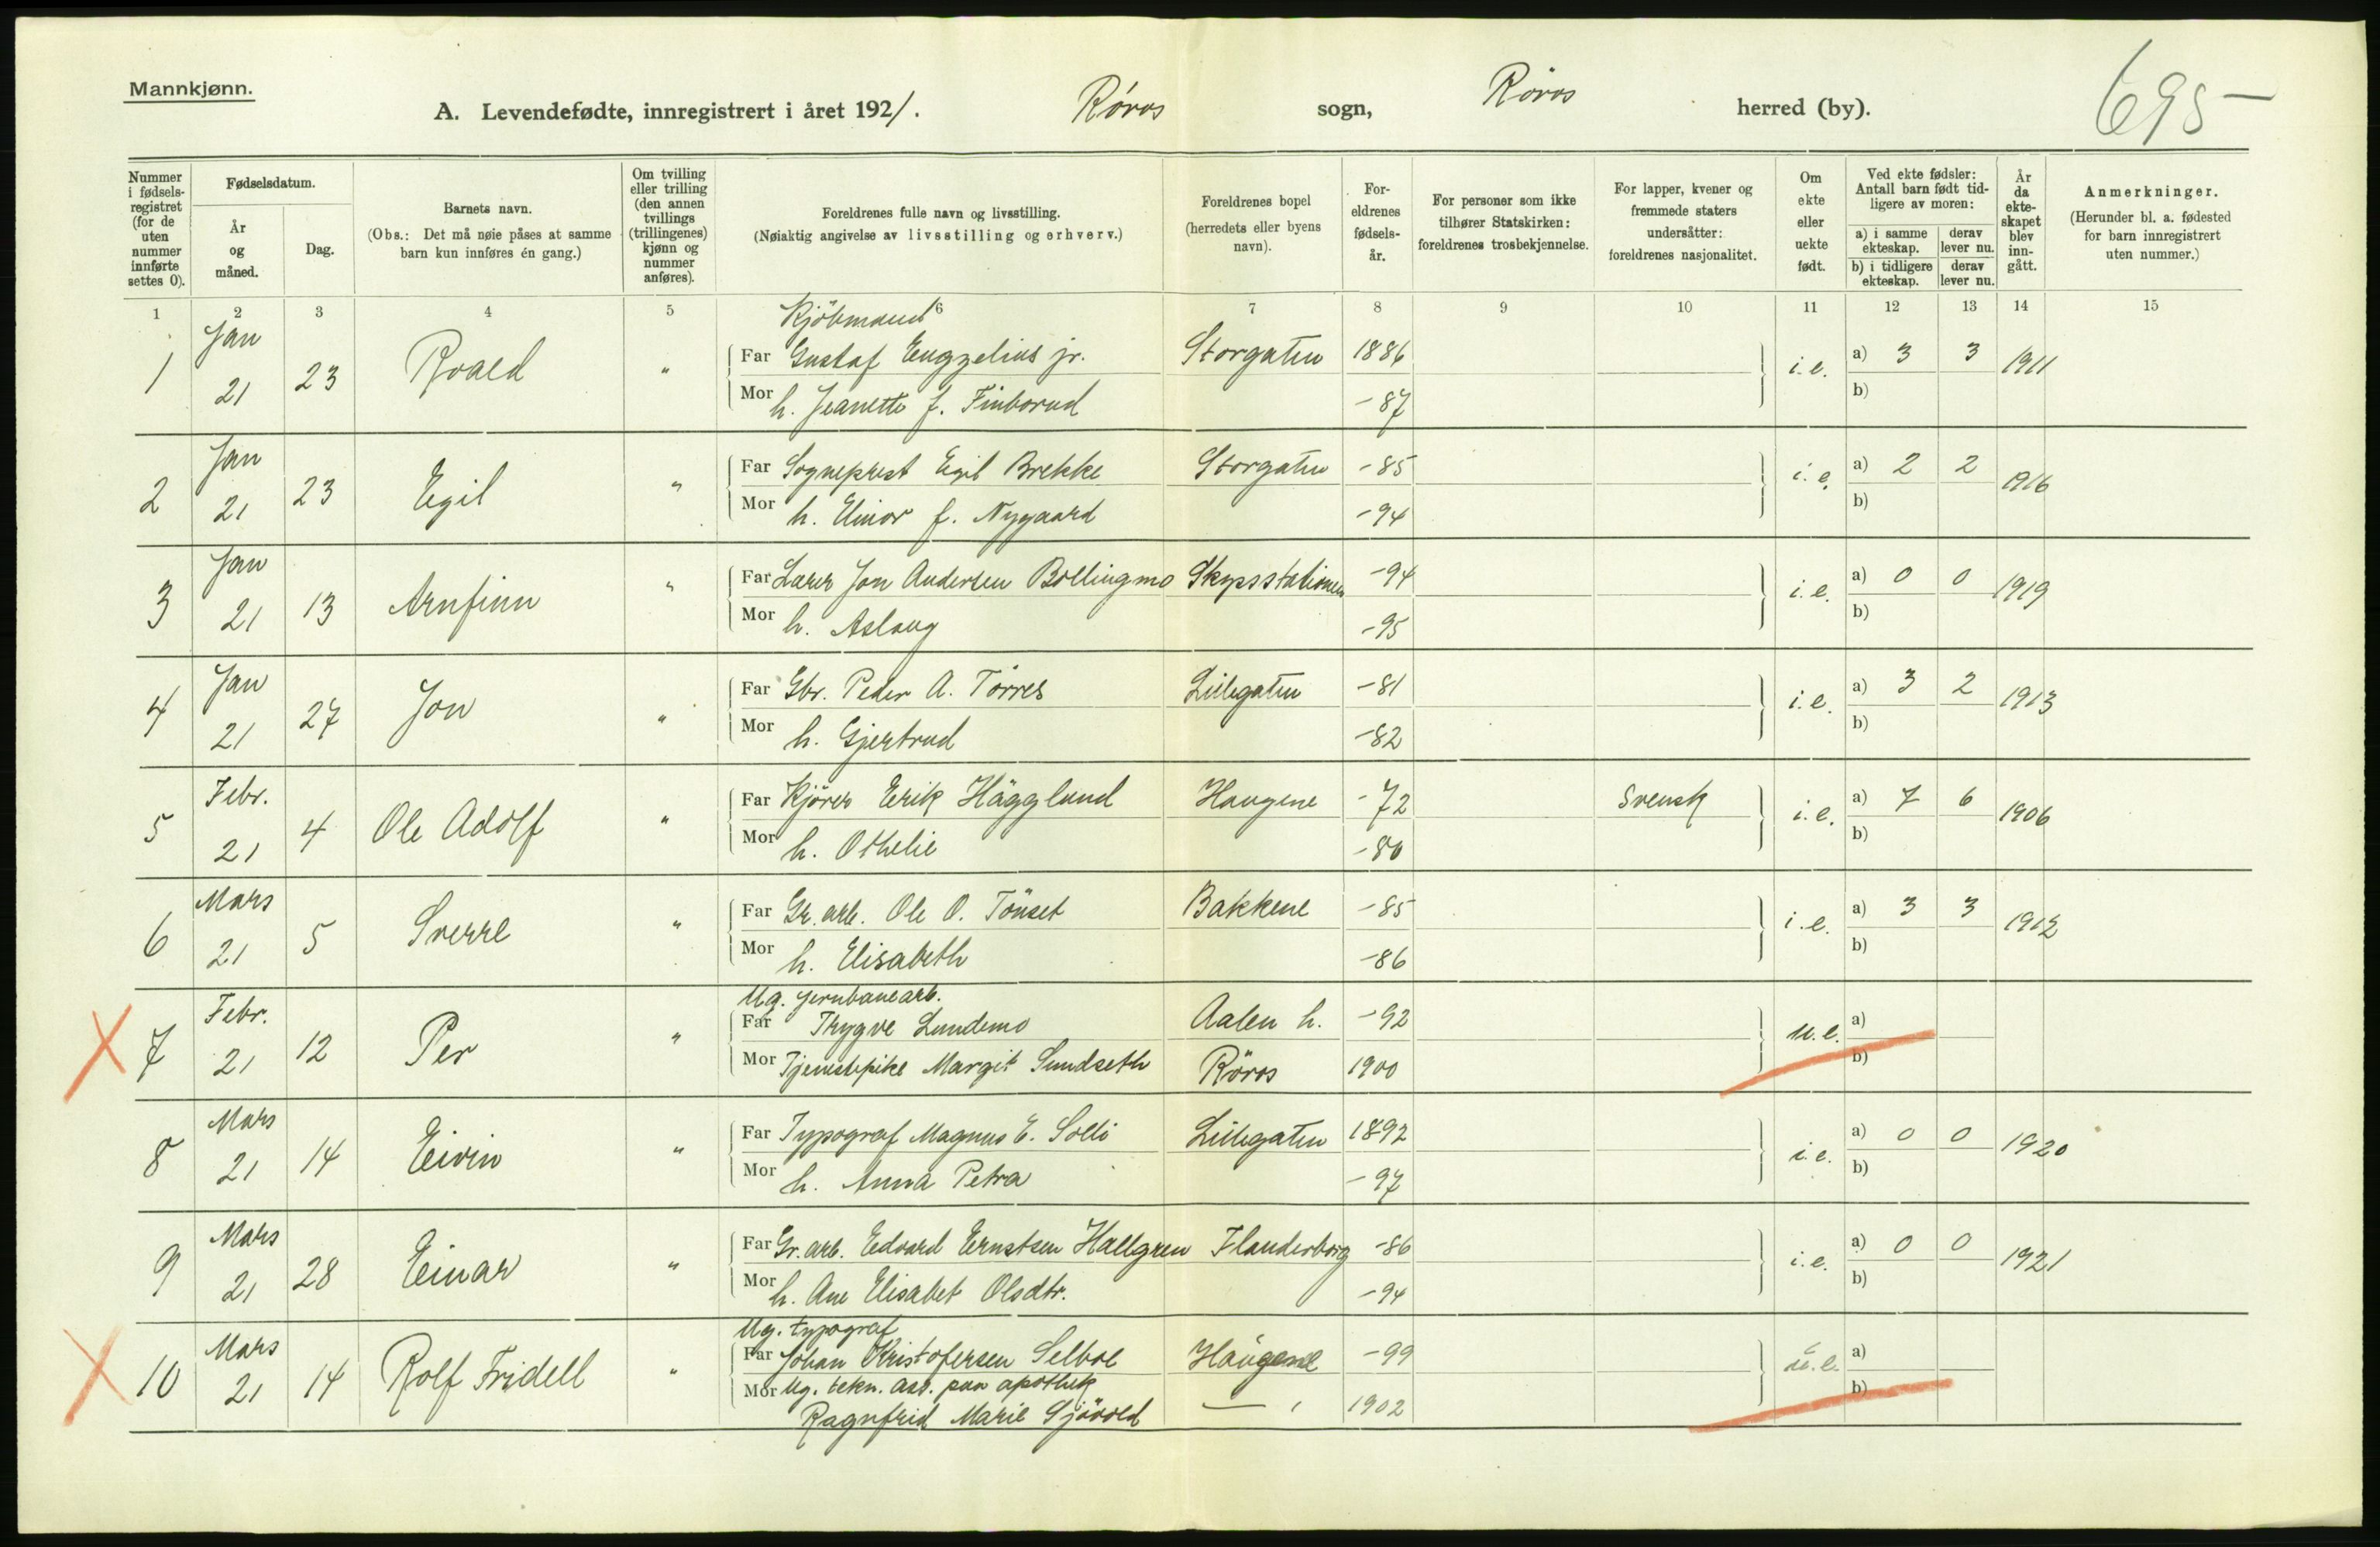 Mannkjønn.
A. Levendefødte, innregistrert i året 1921. Röros sogn, Röros herred (by). 695-
Nummer i fødsels-registret (for de uten nummer innførte settes 0).
Fødselsdatum.
År og måned.
Dag.
Barnets navn.
(Obs.: Det må nøie påses at samme barn kun innføres én gang.)
Om tvilling eller trilling (den annen tvillings (trillingenes) kjønn og nummer anføres).
Foreldrenes fulle navn og livsstilling.
(Nøiaktig angivelse av livsstilling og erhverv.)
Foreldrenes bopel
(herredets eller byens navn).
For-eldrenes fødsels-år.
For personer som ikke tilhører Statskirken: foreldrenes trosbekjennelse.
For lapper, kvener og fremmede staters undersåtter: foreldrenes nasjonalitet.
Om ekte eller uekte født.
Ved ekte fødsler: Antall barn født tid-ligere av moren:
a) i samme ekteskap. derav lever nu.
b) i tidligere ekteskap. derav lever nu.
År da ekte-skapet blev inn-gått.
Anmerkninger.
(Herunder bl. a. fødested for barn innregistrert uten nummer.)
1 2 3 4 5 6 7 8 9 10 11 12 13 14 15
Kjöbmand
1 Jan 21 23 Roald " Far Gustaf Engzelius jr. Storgaten 1886 i.e. a) 3 3 1911
Mor h. Jeanette f. Finborud -87 b)
2 Jan 21 23 Egil " Far Sogneprest Egil Brekke Storgaten -85 i.e. a) 2 2 1916
Mor h. Elinor f. Nygaard -94 b)
3 Jan 21 13 Arnfinn " Far Lærer Jon Andersen Bollingmo Skysstationen -94 i.e. a) 0 0 1919
Mor h. Aslaug -95 b)
4 Jan 21 27 Jon " Far Gbr. Peder A. Törres Lillegaten -81 i.e. a) 3 2 1913
Mor h. Gjertrud -82 b)
5 Febr. 21 4 Ole Adolf " Far Kjörer Erik Hägglund Haugene -72 Svensk i.e. a) 7 6 1906
Mor h. Othelie -80 b)
6 Mars 21 5 Sverre " Far Gr. arb. Ole O. Tönset Bakkene -85 i.e. a) 3 3 1912
Mor h. Elisabeth -86 b)
Ug. jernbanearb.
7 Febr. 21 12 Per " Far Thygve Lundemo Aalen h. -92 u.e. a)
Mor Tjenestepike Margit Sundseth Röros 1900 b)
8 Mars 21 14 Eivin " Far Typograf Magnus E. Solli Lillegaten 1892 i.e. a) 0 0 1920
Mor h. Anna Petra -97 b)
9 Mars 21 28 Einar " Far Gr. arb. Edvard Ernstsen Hallgren Flanderborg -86 i.e. a) 0 0 1921
Mor h. Ane Elisabet Olsdtr. -94 b)
Ug. typograf
10 Mars 21 14 Rolf Fridell " Far Johan Kristofersen Selboe Haugene -99 u.e. a)
Mor Ug. tekn. ass. paa apothek
Ragnfrid Marie Sjövold — " 1902 b)